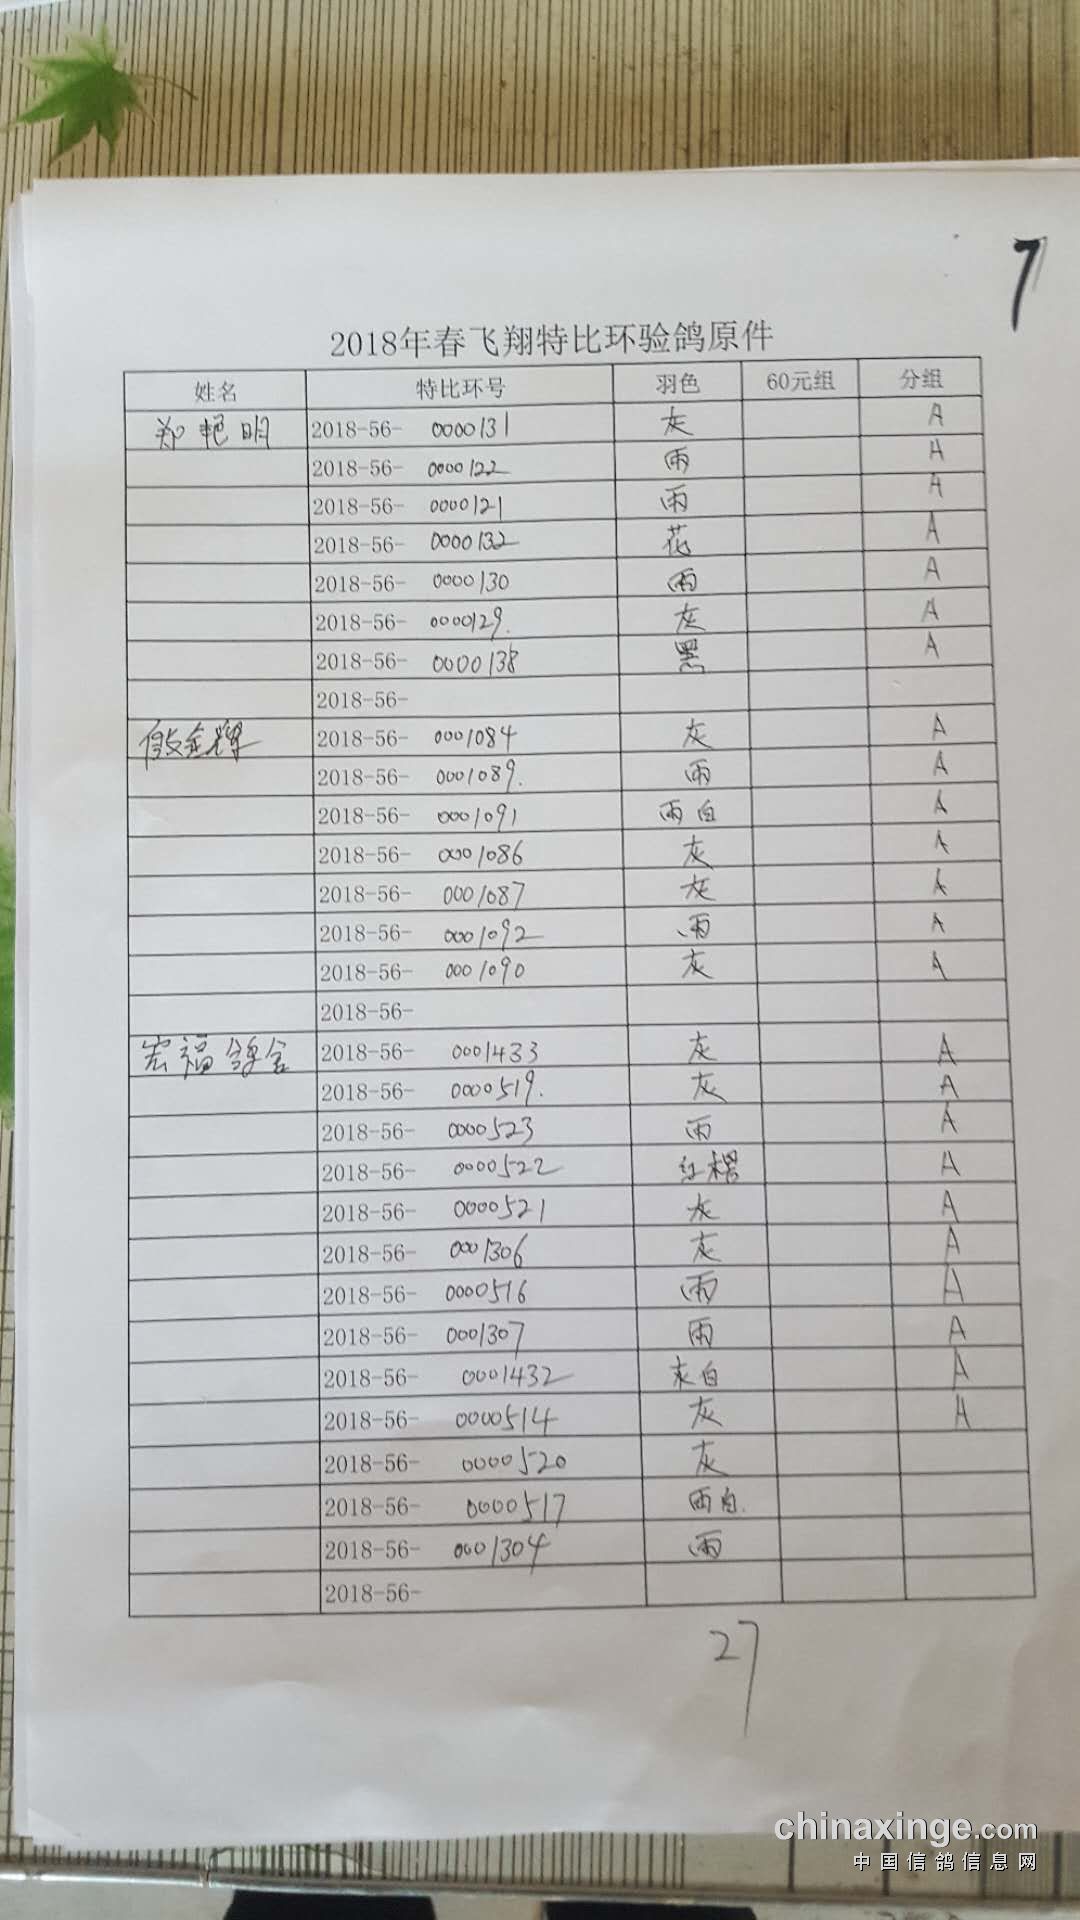 7
2018年春飞翔特比环验鸽原件
姓名 特比环号 羽色 60元组 分组
郑艳明 2018-56- 0000131 灰 A
2018-56- 0000122 雨 A
2018-56- 0000121 雨 A
2018-56- 0000132 花 A
2018-56- 0000130 雨 A
2018-56- 0000129. 灰 A
2018-56- 0000138 黑 A
2018-56-
金辉 2018-56- 0001084 灰 A
2018-56- 0001089. 雨 A
2018-56- 0001091 雨白 A
2018-56- 0001086 灰 A
2018-56- 0001087 灰 A
2018-56- 0001092 雨 A
2018-56- 0001090 灰 A
2018-56-
宏福鸽舍 2018-56- 0001433 灰 A
2018-56- 0000519. 灰 A
2018-56- 0000523 雨 A
2018-56- 0000522 红楞 A
2018-56- 0000521 灰 A
2018-56- 0001306 灰 A
2018-56- 0000516 雨 A
2018-56- 0001307 雨 A
2018-56- 0001432 灰白 A
2018-56- 0000514 灰 A
2018-56- 0000520 灰
2018-56- 0000517 雨白.
2018-56- 0001304 雨
2018-56-
27
chinaxinge.com
中国信鸽信息网